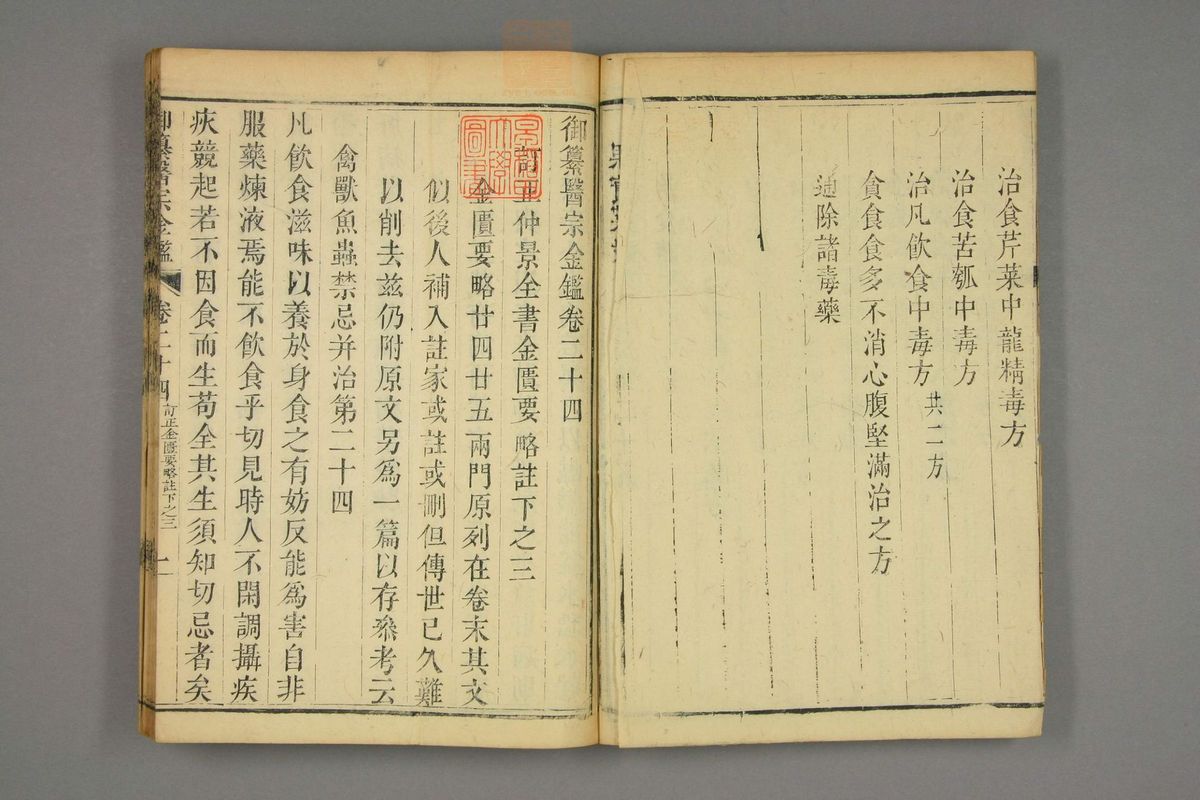 治食芹菜中龍精毒方
治食苦瓠中毒方
治凡飲食中毒方 共二方
貪食食多不消心腹堅滿治之方
通除諸毒藥
御纂醫宗金鑑卷二十四
訂正仲景全書金匱要略註下之三
金匱要略廿四廿五兩門原列在卷末其文
似後人補入註家或註或刪但傳世已久難
以削去茲仍附原文另爲一篇以存叅考云
禽獸魚蟲禁忌并治第二十四
凡飲食滋味以養於身食之有妨反能爲害自非
服藥煉液焉能不飲食乎切見時人不閑調攝疾
疢競起若不因食而生苟全其生須知切忌者矣
御纂醫宗金鑑 卷二十四 訂正金匱要略註下之三 一